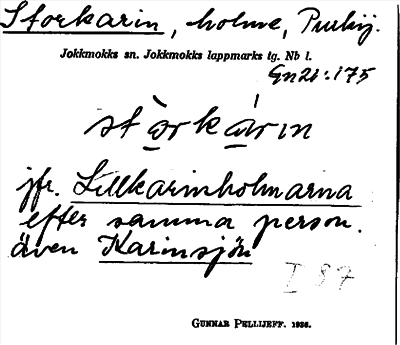 Storkarin, holme, Purkij.
Jokkmokks sn. Jokkmokks lappmarks tg. Nb l.
Gn21:175
stòrkárin
jfr. Lillkarinholmarna
efter samma person.
även Karinsjön
I 87
GUNNAR PELLIJEFF. 1936.